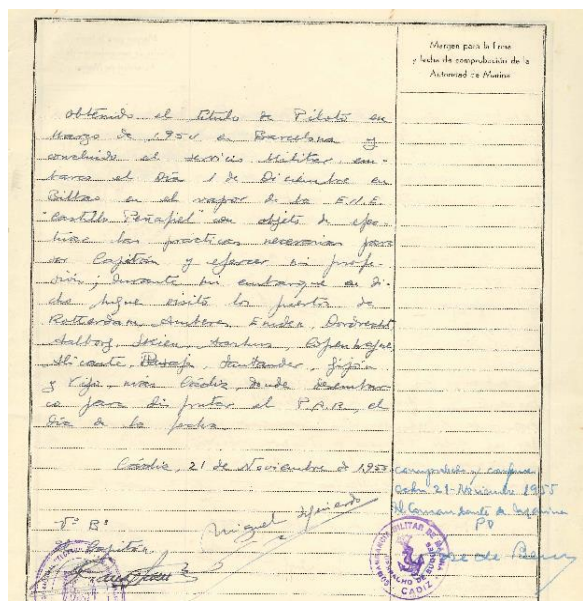 Margen para la firma
y fecha de comprobación de la
Autoridad de Marina
obtenido el título de Piloto en
Marzo de 1954 en Barcelona y
concluido el servicio Militar, em-
barco el Día 1 de Diciembre en
Bilbao en el vapor de la E.N.E.
"Castillo Peñafiel" con objeto de efec-
tuar las practicas necesarias para
ser Capitán y ejercer mi profe-
sión, durante mi embarque en di-
cho buque visitó los puertos de
Rotterdam, Amberes, Emden, Dordrecht,
Aalborg, Aarhus, Copenhague
Alicante, Pasaje, Santander, Gijón
y Vigo, más Cádiz, donde desembar-
co para disfrutar el P.A.R., el
Día de la fecha.
Cádiz, 21 de Noviembre de 1955
comprobado y conforme
Cádiz 21-Noviembre 1955
El Comandante de Marina
PO
Vº Bº
El Capitán,
Miguel Izquierdo
MILITAR DE MARINA
CADIZ